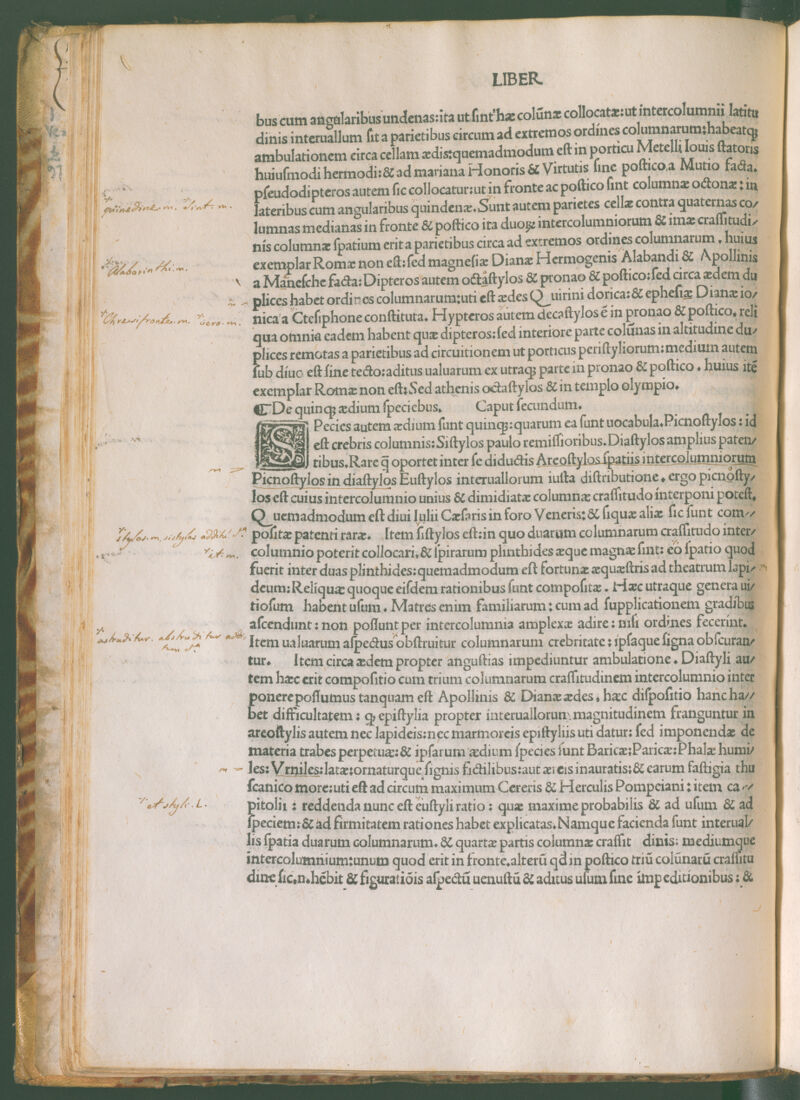 LIBER
bus cum angularibus undenas:ita ut ſint hæ colūnæ collocatæ:ut intercolumnii latitu
dinis interuallum ſit a parietibus circum ad extremos ordines columnarum;habeatq;
ambulationem circa cellam ædis:quemadmodum eſt in porticu Metelli Iouis ſtatoris
huiuſmodi hermodi:& ad mariana Honoris & Virtutis ſine poſtico.a Mutio facta.
pſeudodipteros autem ſic collocatur:ut in fronte ac poſtico ſint columnæ octonæ: in
lateribus cum angularibus quindenæ.Sunt autem parietes cellæ contra quaternas co/
lumnas medianas in fronte & poſtico ita duoꝝ intercolumniorum & imæ craſſitudi/
quinedine. m. sint. m.
nis columnæ ſpatium erit a parietibus circa ad extremos ordines columnarum, huius
exemplar Romæ non eſt:ſed magneſiæ Dianæ Hermogenis Alabandi & Apollinis
Alabarinthi. m.
a Maneſche facta: Dipteros autem octaſtylos & pronao & poſtico:ſed circa ædem du
plices habet ordines columnarum:uti eſt ædes Quirini dorica:& epheſiæ Dianæ io/
nica a Cteſiphone conſtituta. Hypteros autem decaſtylos ē in pronao & poſtico, reli
Chresifrontes. m. vero. m.
qua omnia eadem habent quæ dipteros:ſed interiore parte colūnas in altitudine du/
plices remotas a parietibus ad circuitionem ut porticus periſtyliorum:medium autem
ſub diuo eſt ſine tecto:aditus ualuarum ex utraq; parte in pronao & poſtico . huius itē
exemplar Romæ non eſt:Sed athenis octaſtylos & in templo olympio.
De quinq; ædium ſpeciebus. Caput ſecundum.
SPecies autem ædium ſunt quinq;:quarum ea ſunt uocabula.Picnoſtylos : id
eſt crebris columnis:Siſtylos paulo remiſſioribus.Diaſtylos amplius paten/
tibus.Rare q̄ oportet inter ſe diductis Areoſtylos ſpatiis intercolumniorum
Picnoſtylos in diaſtylos Euſtylos interuallorum iuſta diſtributione . ergo picnoſty/
los eſt cuius intercolumnio unius & dimidiatæ columnæ craſſitudo interponi poteſt.
Quemadmodum eſt diui Iulii Cæſaris in foro Veneris:& ſiquæ aliæ ſic ſunt com//
poſitæ patenti raræ. Item ſiſtylos eſt:in quo duarum columnarum craſſitudo inter/
columnio poterit collocari,& ſpirarum plinthides æque magnæ ſint: eo ſpatio quod
fuerit inter duas plinthides:quemadmodum eſt fortunæ æquæſtris ad theatrum lapi/
deum:Reliquæ quoque eiſdem rationibus ſunt compoſitæ . Hæc utraque genera ui/
tioſum habent uſum . Matres enim familiarum : cum ad ſupplicationem gradibus
aſcendunt : non poſſunt per intercolumnia amplexæ adire : niſi ordines fecerint.
Item ualuarum aſpectus obſtruitur columnarum crebritate : ipſaque ſigna obſcuran/
tur. Item circa ædem propter anguſtias impediuntur ambulatione . Diaſtyli au/
tem hæc erit compoſitio cum trium columnarum craſſitudinem intercolumnio inter
ponere poſſumus tanquam eſt Apollinis & Dianæ ædes, hæc diſpoſitio hanc ha//
bet difficultatem : q; epiſtylia propter interuallorum magnitudinem franguntur in
areoſtylis autem nec lapideis:nec marmoreis epiſtyliis uti datur: ſed imponendæ de
materia trabes perpetuæ:& ipſarum ædium ſpecies ſunt Baricæ:Paricæ:Phalæ humi/
les: Vrniles:latæ:ornaturque ſignis fictilibus:aut æreis inauratis:& earum faſtigia thu
ſcanico more:uti eſt ad circum maximum Cereris & Herculis Pompeiani : item ca//
pitolii : reddenda nunc eſt euſtyli ratio : quæ maxime probabilis & ad uſum & ad
et styli. L.
ſpeciem:& ad firmitatem rationes habet explicatas.Namque facienda ſunt interual/
lis ſpatia duarum columnarum. & quartæ partis columnæ craſſit dinis: mediumque
intercolumnium:unum quod erit in fronte.alterū qd in poſtico triū colūnarū craſſitu
dine ſic.n.hēbit & figuratiōis aſpectū uenuſtū & aditus uſum ſine impeditionibus : &